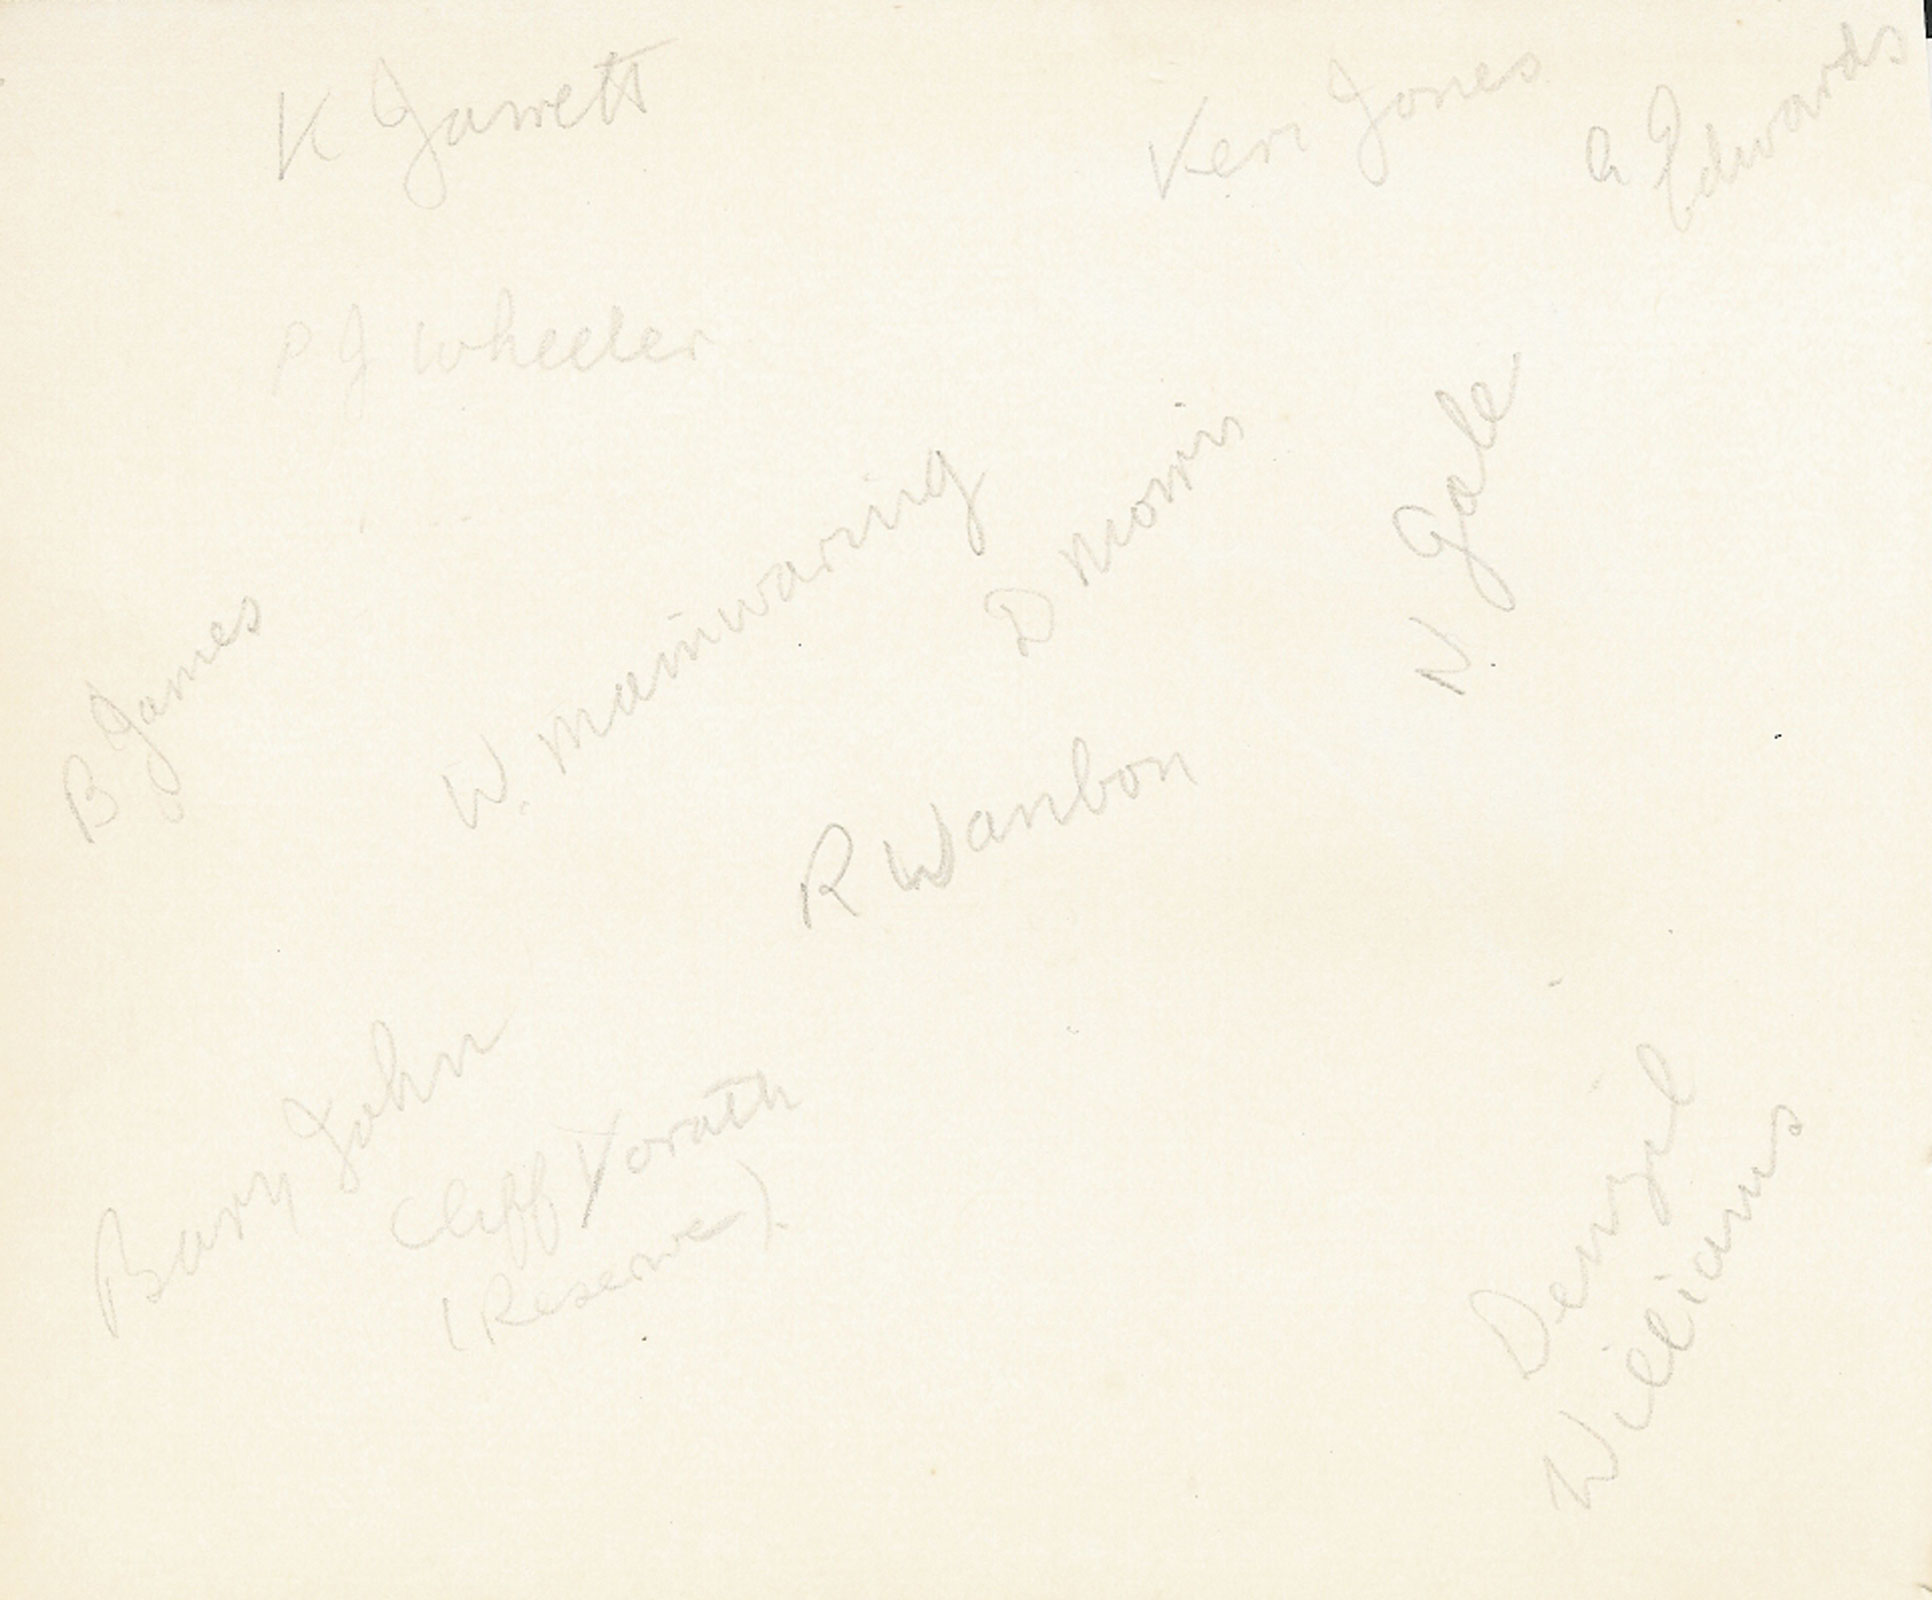 K Jarrett
Keri Jones
G Edwards
P J Wheeler
N. Gale
D Morris
W. Mainwaring
B James
R Wanbon
Barry John
Cliff Yorath
(Reserve).
Denzil
Williams